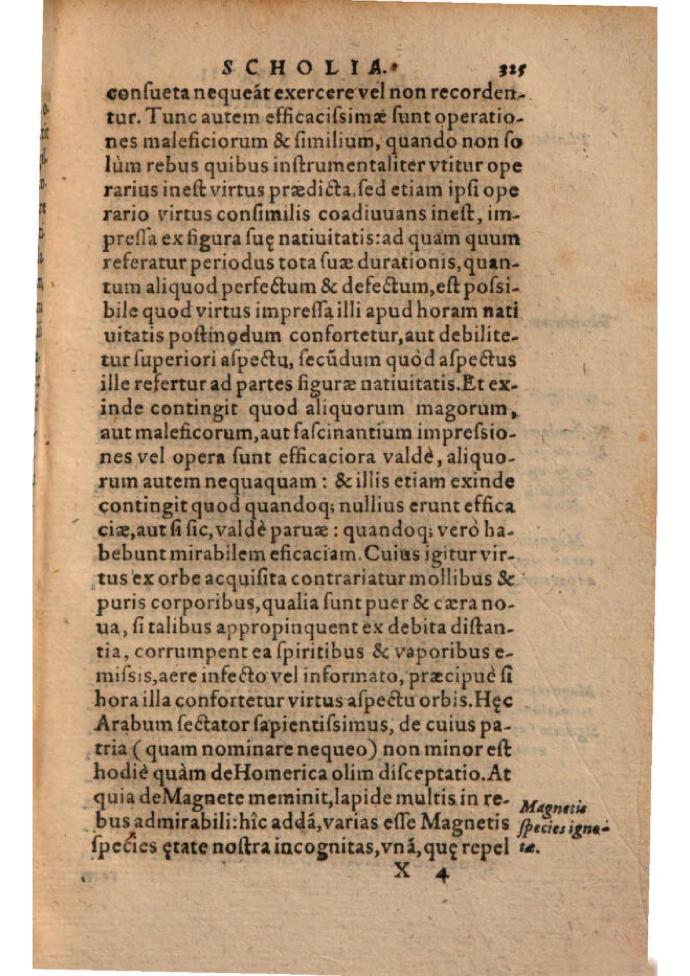 SCHOLIA. 325
consueta nequeát exercere vel non recorden-
tur. Tunc autem efficacissimæ sunt operatio-
nes maleficiorum & similium, quando non so
lùm rebus quibus instrumentaliter vtitur ope
rarius inest virtus prædicta, sed etiam ipsi ope
rario virtus consimilis coadiuuans inest, im-
pressa ex figura suę natiuitatis: ad quam quum
referatur periodus tota suæ durationis, quan-
tum aliquod perfectum & defectum, est possi-
bile quod virtus impressa illi apud horam nati
uitatis postmodum confortetur, aut debilite-
tur superiori aspectu, secũdum quòd aspectus
ille refertur ad partes figuræ natiuitatis. Et ex-
inde contingit quod aliquorum magorum,
aut maleficorum, aut fascinantium impressio-
nes vel opera sunt efficaciora valdè, aliquo-
rum autem nequaquam: & illis etiam exinde
contingit quod quandoq; nullius erunt effica
ciæ, aut si sic, valdè paruæ: quandoq; verò ha-
bebunt mirabilem eficaciam. Cuius igitur vir-
tus ex orbe acquisita contrariatur mollibus &
puris corporibus, qualia sunt puer & cæra no-
ua, si talibus appropinquent ex debita distan-
tia, corrumpent ea spiritibus & vaporibus e-
missis, aere infecto vel informato, præcipuè si
hora illa confortetur virtus aspectu orbis. Hęc
Arabum sectator sapientissimus, de cuius pa-
tria (quam nominare nequeo) non minor est
hodiè quàm de Homerica olim disceptatio. At
quia de Magnete meminit, lapide multis in re-
bus admirabili: hîc addã, varias esse Magnetis
species ętate nostra incognitas, vnã, quę repel
Magnetis
species igno-
tæ.
X 4